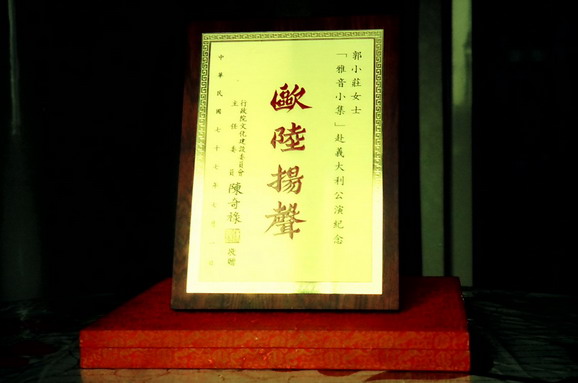 郭小莊女士
「雅音小集」赴義大利公演紀念
歐陸揚聲
行政院文化建設委員會
主任委員 陳奇祿 敬贈
中華民國七十七年七月一日